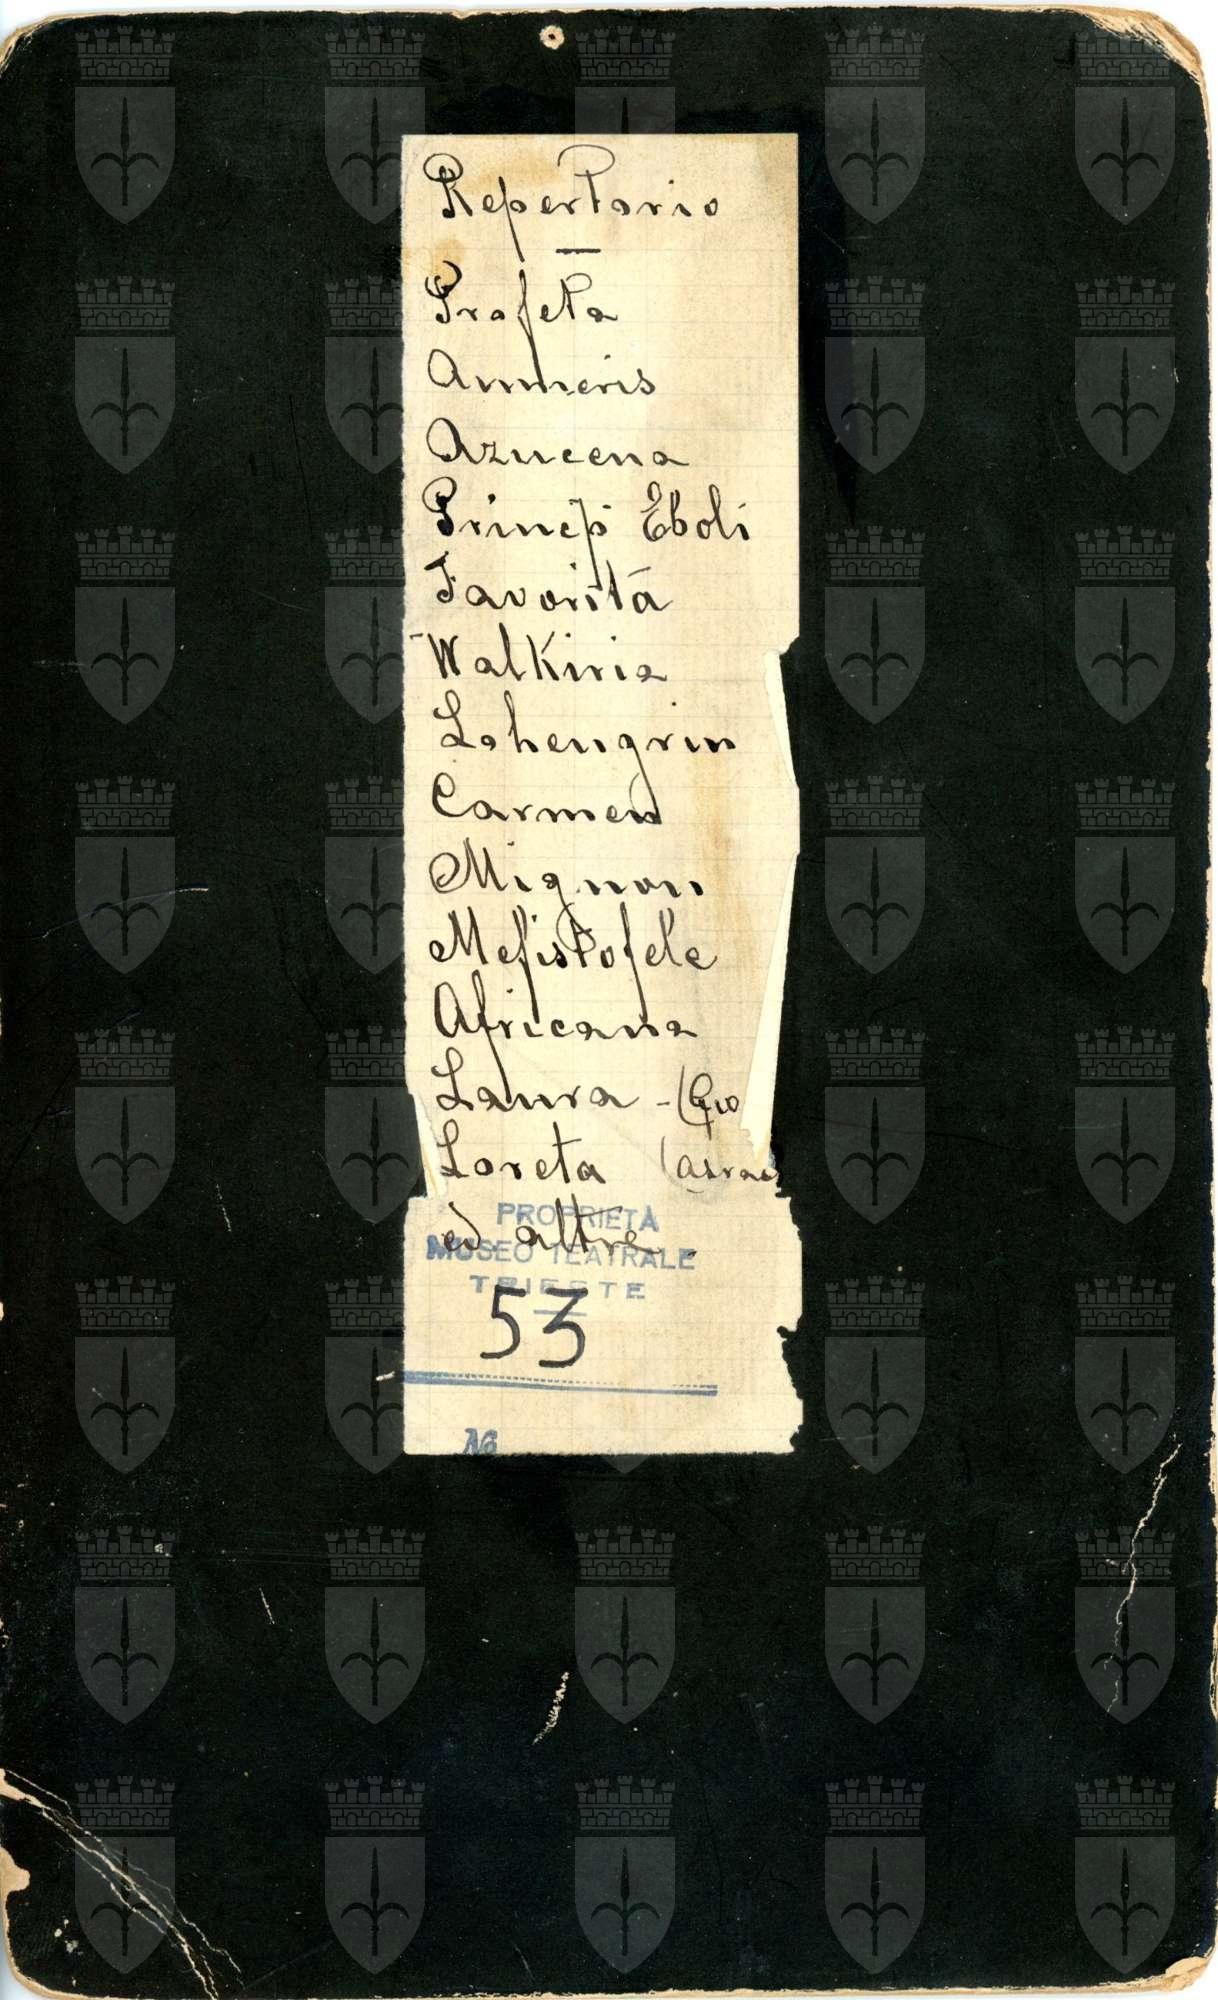 Repertorio
Profeta
Ammeris
Azucena
Princip Eboli
Favorita
Walkiria
Lohengrin
Carmen
Mignon
Mefistofele
Africana
Laura - (Gio
Loreta (Asrae
ed altre.
PROPRIETÀ
MUSEO TEATRALE
TRIESTE
53
No